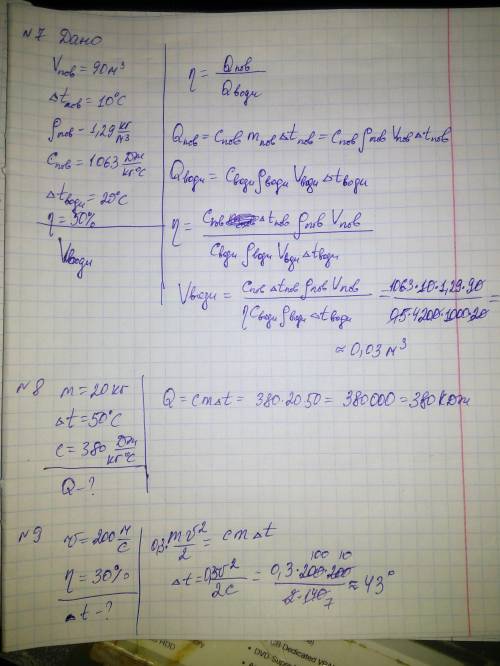 №7 Дано
Vпов = 90 м³
Δtпов = 10°C
ρпов = 1,29 кг/м³
Cпов = 1063 Дж/кг°C
Δtводи = 20°C
η = 50%
Vводи
η = Qпов/Qводи
Qпов = Cпов mпов Δtпов = Cпов ρпов Vпов Δtпов
Qводи = Cводи ρводи Vводи Δtводи
η = Cпов Δtпов ρпов Vпов / Cводи ρводи Vводи Δtводи
Vводи = Cпов Δtпов ρпов Vпов / ηCводи ρводи Δtводи = 1063·10·1,29·90 / 0,5·4200·1000·20 =
≈ 0,03 м³
№8 m = 20 кг
Δt = 50°C
c = 380 Дж/кг°C
Q - ?
Q = cmΔt = 380·20·50 = 380000 = 380 кДж
№9 v = 200 м/с
η = 30%
Δt - ?
0,3·mv²/2 = cmΔt
Δt = 0,3v²/2c = 0,3·200·200 / 2·140 ≈ 43°
100 10
7
DVD-Super